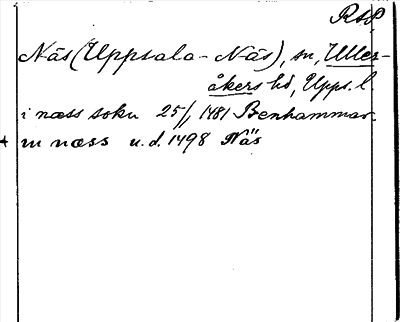 RAP
Näs (Uppsala-Näs), sn, Uller-
åkers hd, Upps. l.
i næss sokn 25/1 1481 Benhammar
in næss u.d. 1498 Näs